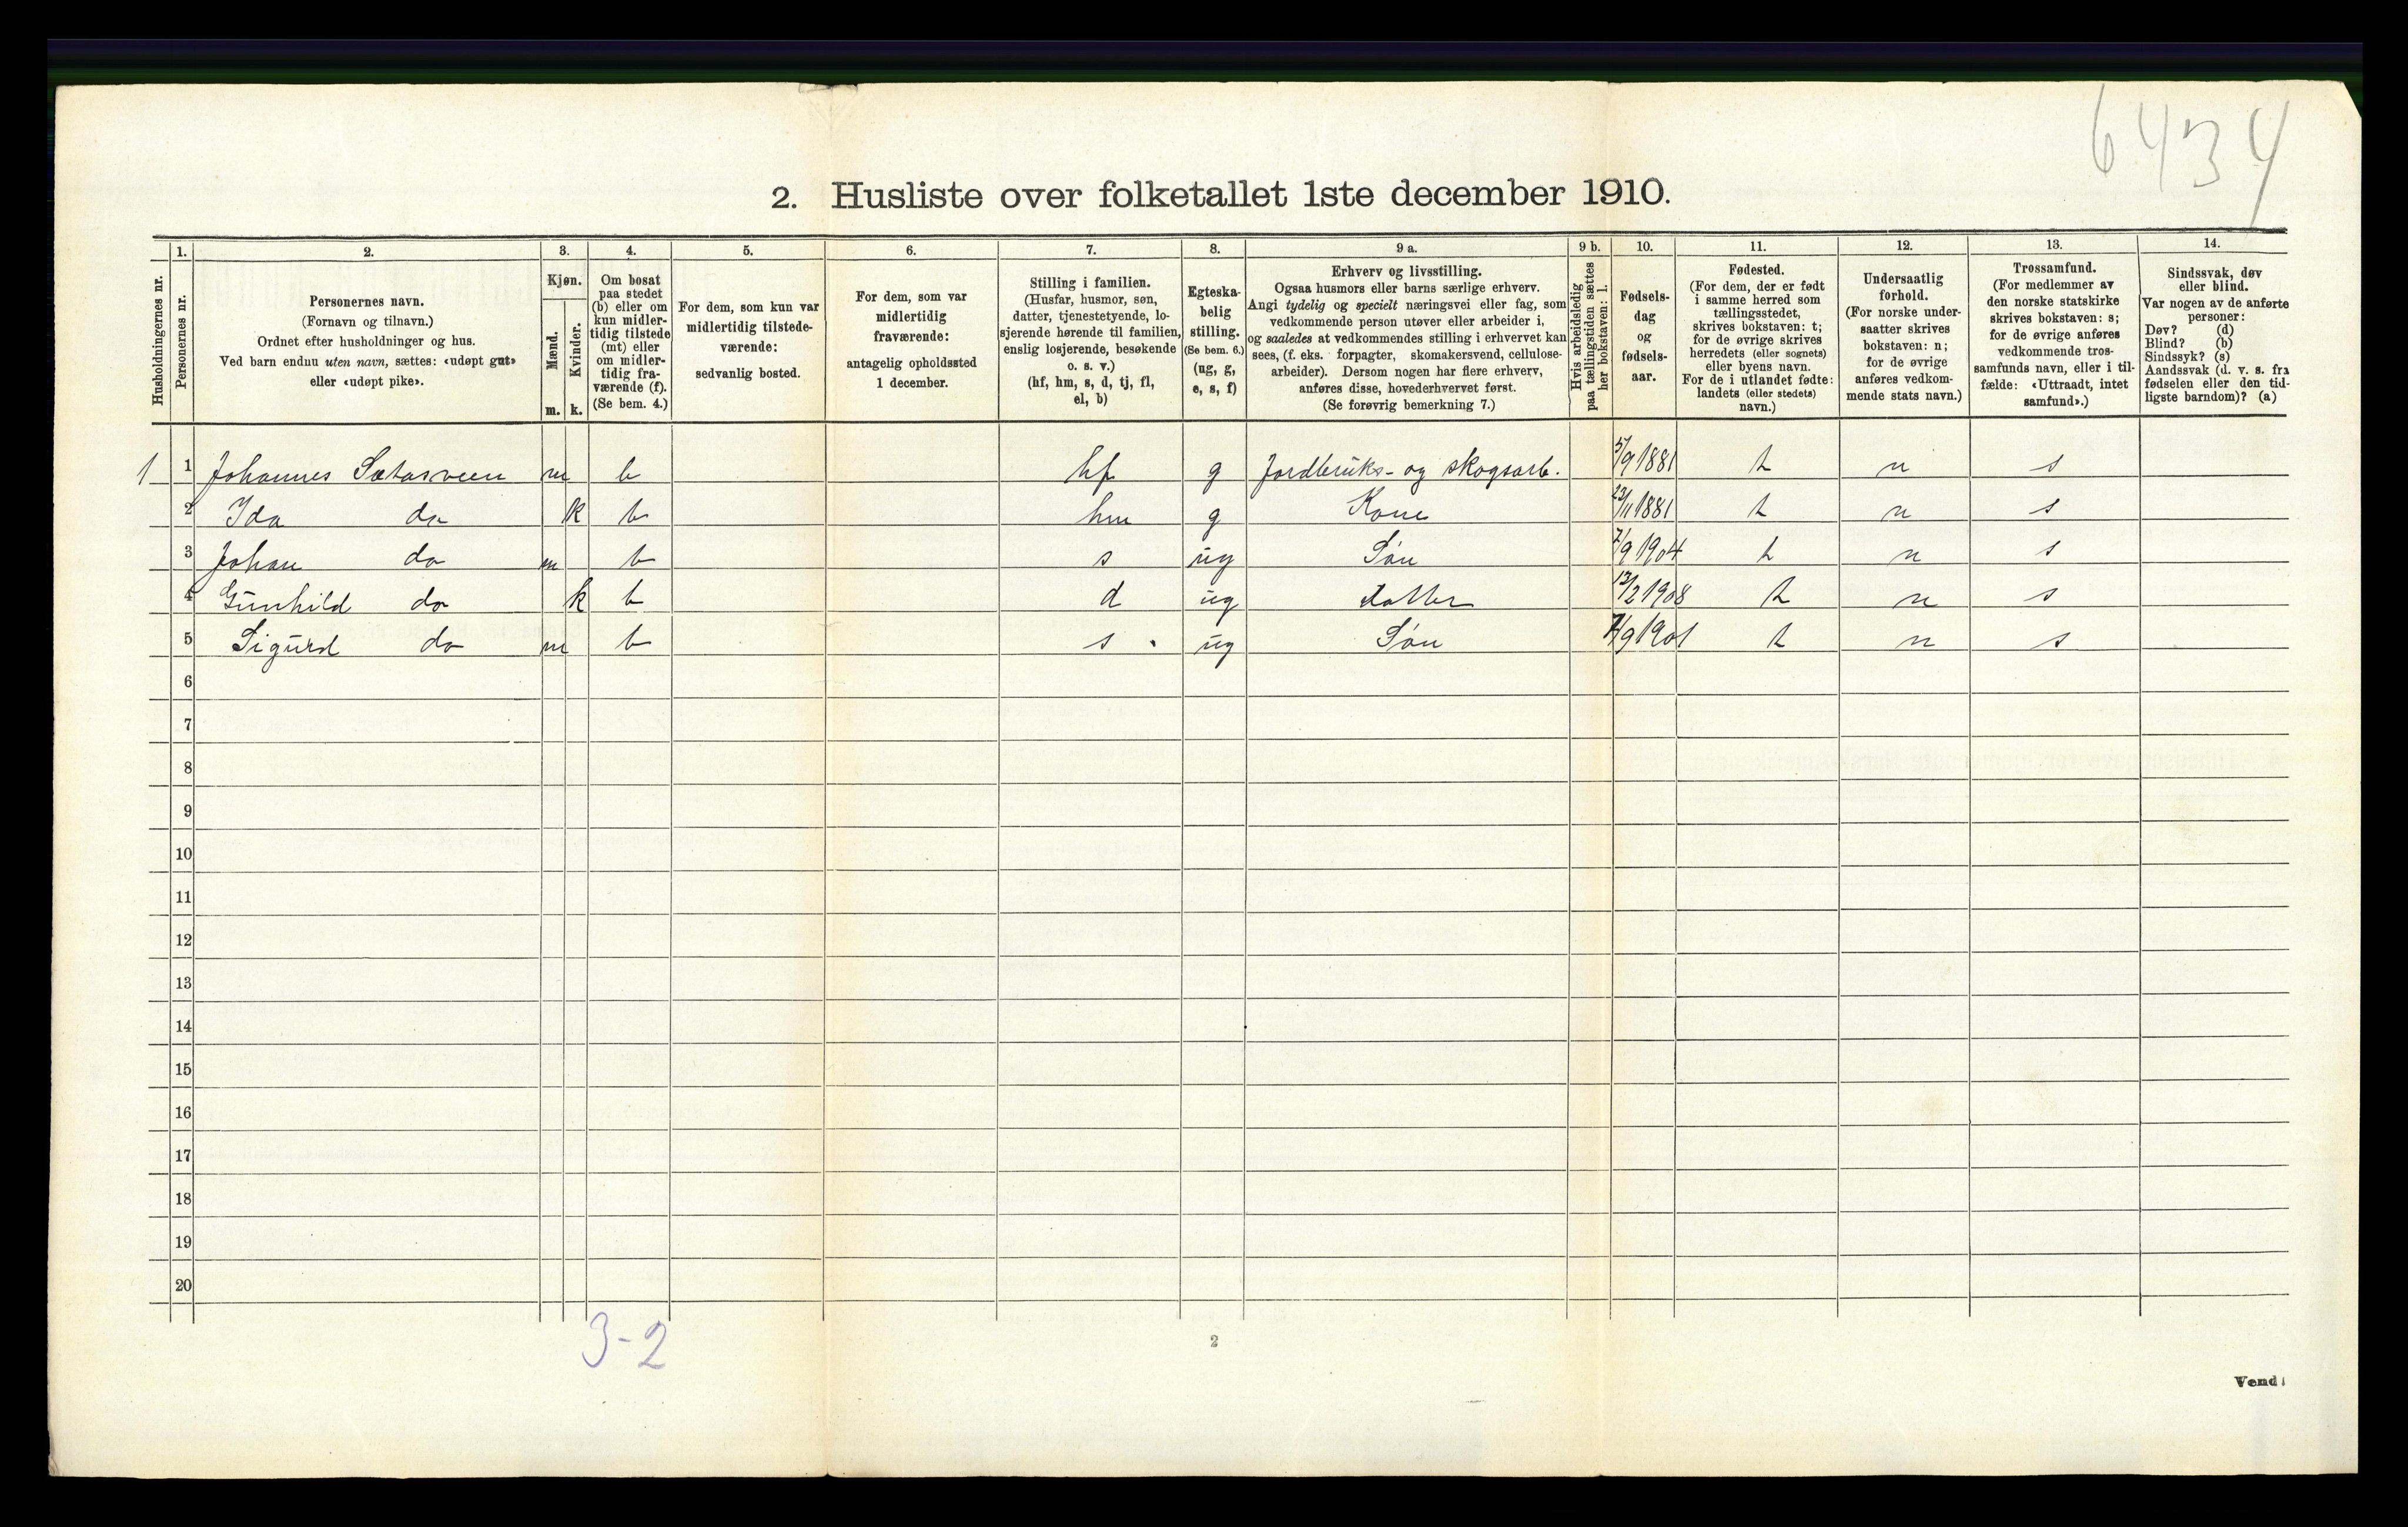 6434
2. Husliste over folketallet 1ste december 1910.
Husholdningernes nr.
1.
Personernes nr.
2.
Personernes navn.
(Fornavn og tilnavn.)
Ordnet efter husholdninger og hus.
Ved barn endnu uten navn, sættes: «udøpt gut»
eller «udøpt pike».
3.
Kjøn.
Mænd.
Kvinder.
m. k.
4.
Om bosat
paa stedet
(b) eller om
kun midler-
tidig tilstede
(mt) eller
om midler-
tidig fra-
værende (f).
(Se bem. 4.)
5.
For dem, som kun var
midlertidig tilstede-
værende:
sedvanlig bosted.
6.
For dem, som var
midlertidig
fraværende:
antagelig opholdssted
1 december.
7.
Stilling i familien.
(Husfar, husmor, søn,
datter, tjenestetyende, lo-
sjerende hørende til familien,
enslig losjerende, besøkende
o. s. v.)
(hf, hm, s, d, tj, fl,
el, b)
8.
Egteska-
belig
stilling.
(Se bem. 6.)
(ug, g,
e, s, f)
9 a.
Erhverv og livsstilling.
Ogsaa husmors eller barns særlige erhverv.
Angi tydelig og specielt næringsvei eller fag, som
vedkommende person utøver eller arbeider i,
og saaledes at vedkommendes stilling i erhvervet kan
sees, (f. eks. forpagter, skomakersvend, cellulose-
arbeider). Dersom nogen har flere erhverv,
anføres disse, hovederhvervet først.
(Se forøvrig bemerkning 7.)
9 b.
Hvis arbeidsledig
paa tællingstiden sættes
her bokstaven: l.
10.
Fødsels-
dag
og
fødsels-
aar.
11.
Fødested.
(For dem, der er født
i samme herred som
tællingsstedet,
skrives bokstaven: t;
for de øvrige skrives
herredets (eller sognets)
eller byens navn.
For de i utlandet fødte:
landets (eller stedets)
navn.)
12.
Undersaatlig
forhold.
(For norske under-
saatter skrives
bokstaven: n;
for de øvrige
anføres vedkom-
mende stats navn.)
13.
Trossamfund.
(For medlemmer av
den norske statskirke
skrives bokstaven: s;
for de øvrige anføres
vedkommende tros-
samfunds navn, eller i til-
fælde: «Uttraadt, intet
samfund».)
14.
Sindssvak, døv
eller blind.
Var nogen av de anførte
personer:
Døv? (d)
Blind? (b)
Sindssyk? (s)
Aandssvak (d. v. s. fra
fødselen eller den tid-
ligste barndom)? (a)
1 1 Johannes Sætasveen m b hf g Jordbruks- og skogsarb. 5/9 1881 t n s
2 Ida do k b hm g Kone 23/11 1881 t n s
3 Johan do m b s ug Søn 7/9 1904 t n s
4 Gunhild do k b d ug datter 12/2 1908 t n s
5 Sigurd do m b s ug Søn /9 1901 t n s
6
7
8
9
10
11
12
13
14
15
16
17
18
19
20
3-2
2
Vend!